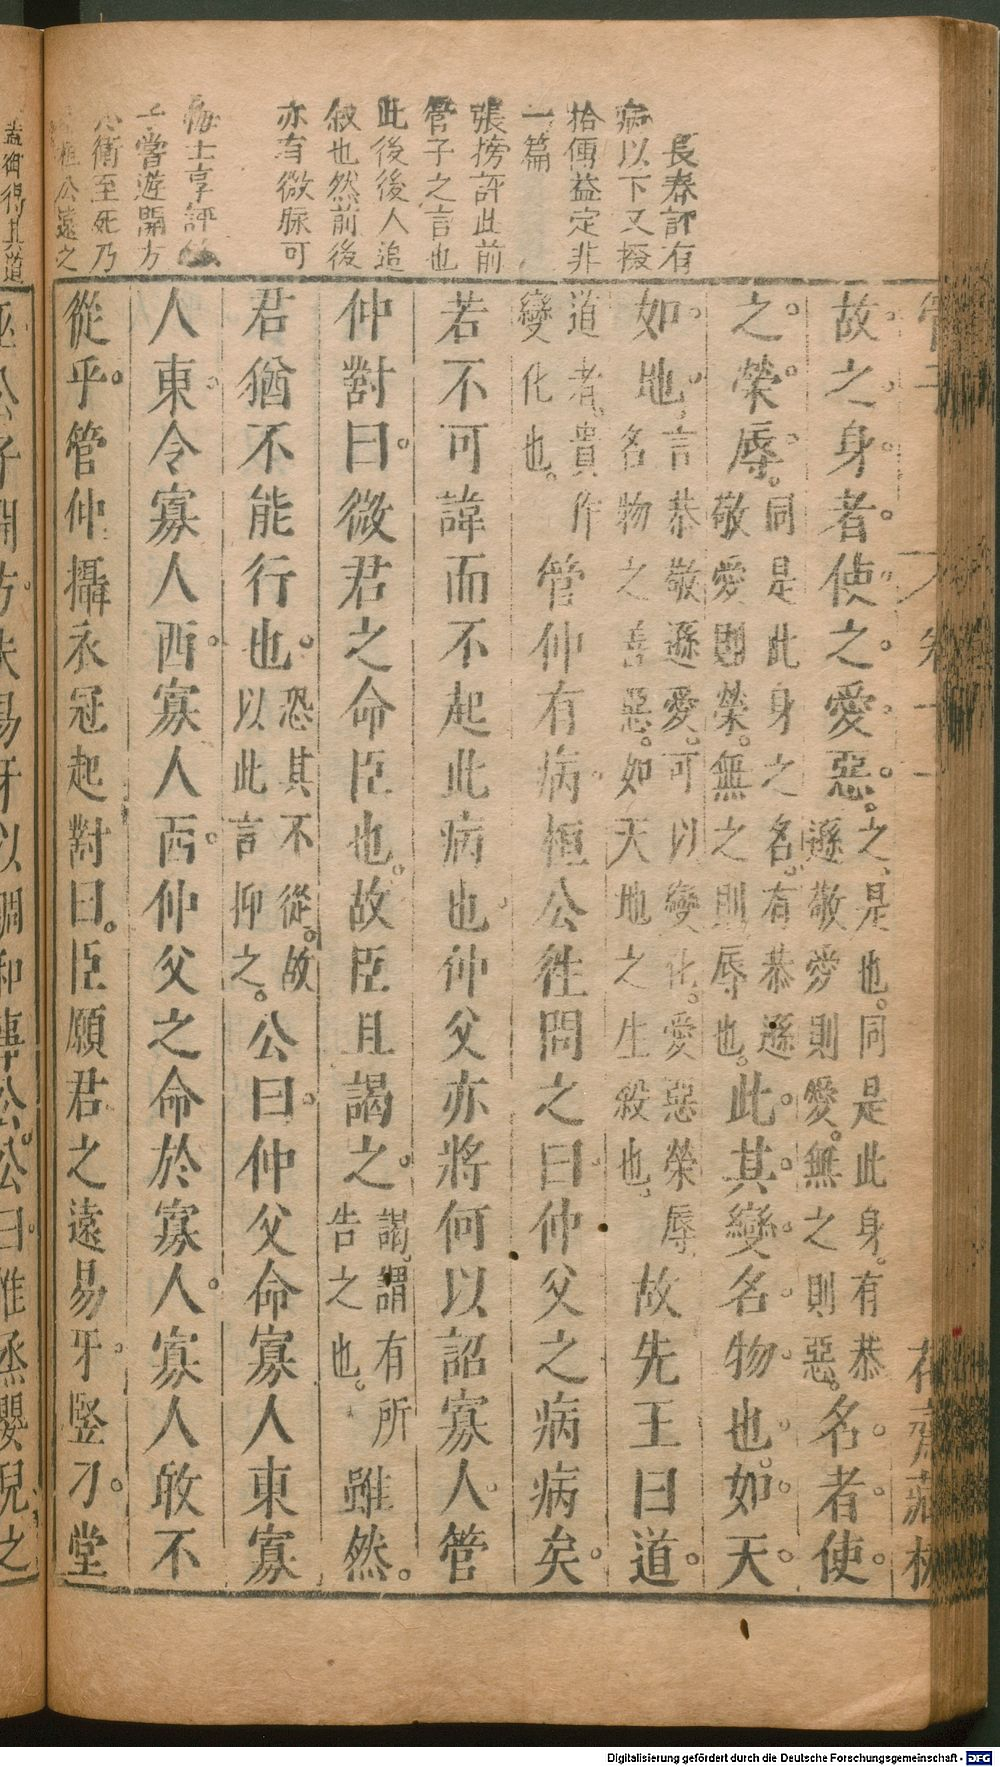 長春評有
病以下又掇
拾傳益定非
一篇
張榜評此前
管子之言也
此後後人追
叙也然前後
亦有微脉可
士享評
嘗遊開方
衛至死乃
桓公遠之
管子
卷十一
花齋藏板
故之身者使之愛惡。之是也。同是此身。有恭
遜敬愛則愛。無之則惡。名者使
之榮辱。同是此身之名。有恭遜
敬愛則榮。無之則辱也。此其變名物也。如天
如地。言恭敬遜愛。可以變化。愛惡榮辱
名物之善惡。如天地之生殺也。故先王曰道
道者。貴作
變化也。管仲有病。桓公徃問之曰。仲父之病病矣。
若不可諱而不起此病也。仲父亦將何以詔寡人。管
仲對曰。微君之命臣也。故臣且謁之。謁。謂有所
告之也。雖然。
君猶不能行也。恐其不從。故
以此言抑之。公曰。仲父命寡人東寡
人東。令寡人西。寡人西。仲父之命於寡人。寡人敢不
從乎。管仲攝衣冠起對曰。臣願君之遠易牙。竪刁。堂
蓋衛得其道
巫公子開方。夫易牙以調和事公。公曰。惟烝嬰兒之
Digitalisierung gefördert durch die Deutsche Forschungsgemeinschaft - DFG